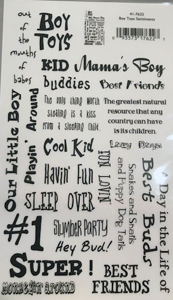 Boy Toys Sentiments
out of the mouths of babes
BOY
TOYS
KID
Mama's Boy
buddies
Best Friends
The only thing worth
stealing is a kiss
from a sleeping child.
The greatest natural
resource that any
country can have
is its children.
Our Little Boy
Playin' Around
Cool Kid
Havin' Fun
SLEEP OVER
FUN LOVIN'
Snakes and Snails
and Puppy Dog Tails
Best Buds
A Day in the Life of
#1
Slumber Party
Hey Bud!
SUPER!
BEST
FRIENDS